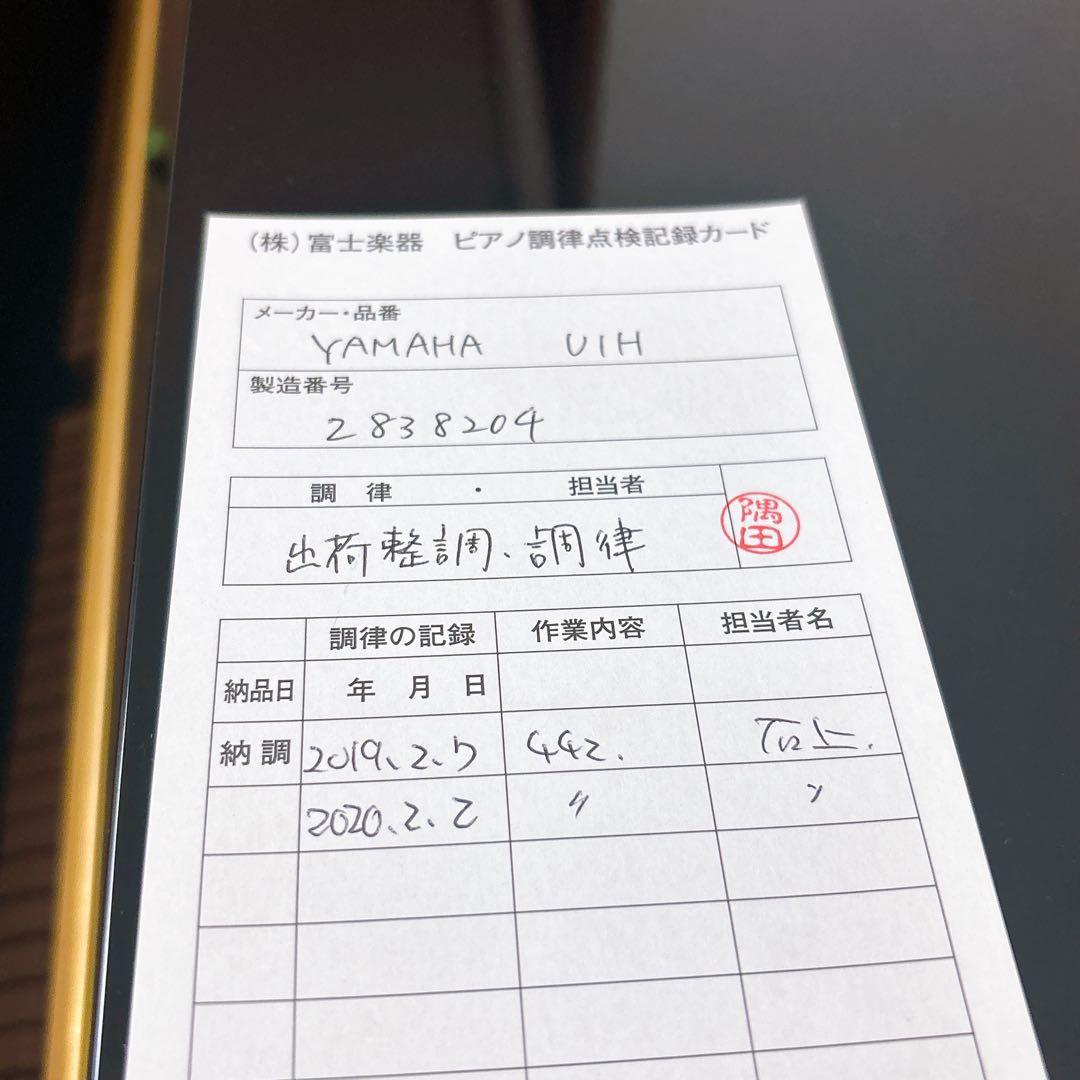 (株)富士楽器 ピアノ調律点検記録カード
メーカー・品番
YAMAHA U1H
製造番号
2838204
調律・担当者
出荷整調、調律
隅田
調律の記録 作業内容 担当者名
納品日 年 月 日
納調 2019.2.7 442. 石上.
2020.2.2 〃 〃